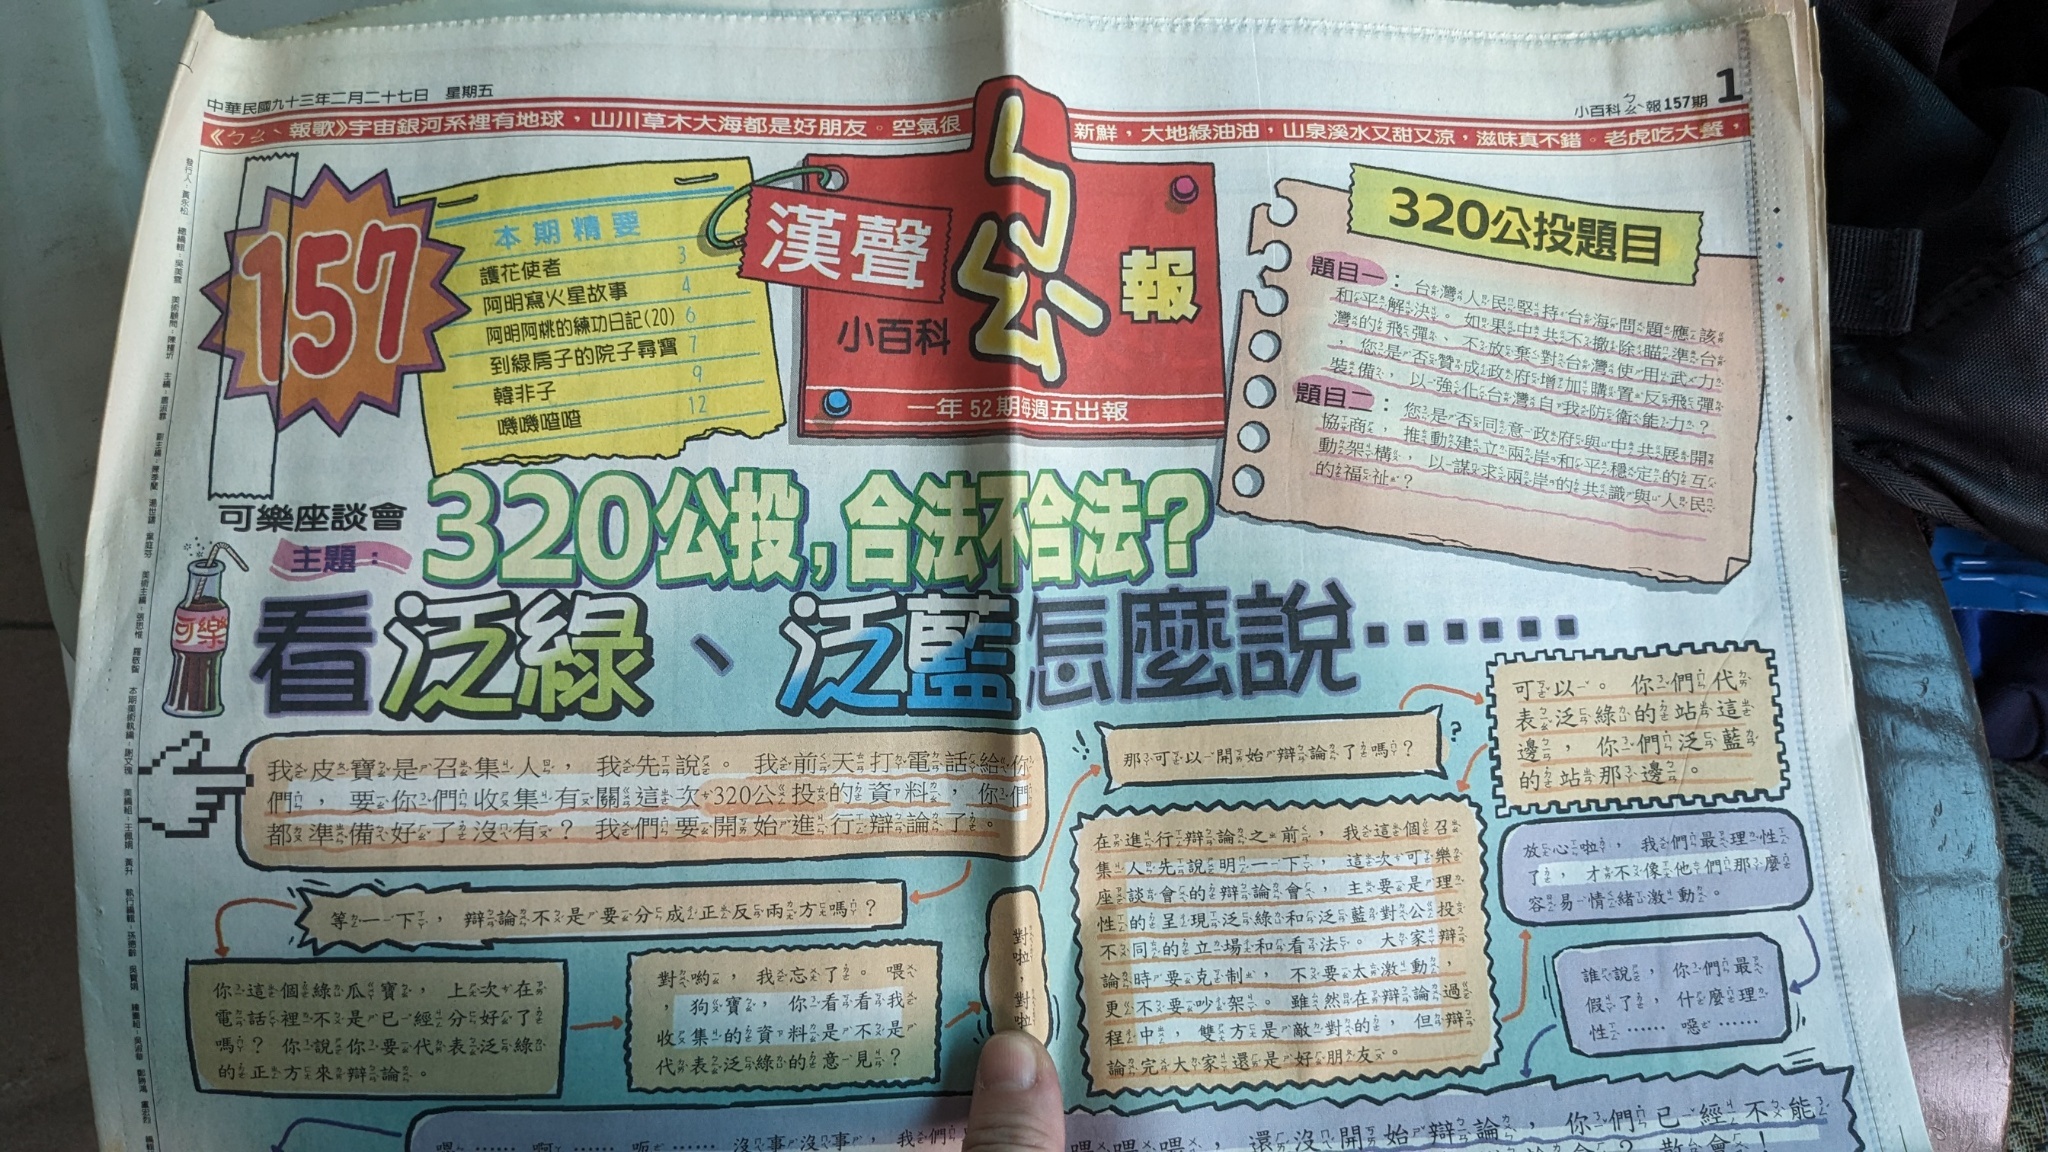 中華民國九十三年二月二十七日 星期五
小百科ㄅㄠˋ報157期 1
《ㄅㄠˋ報歌》宇宙銀河系裡有地球，山川草木大海都是好朋友。空氣很
新鮮，大地綠油油，山泉溪水又甜又涼，滋味真不錯。老虎吃大餐，
157
本期精要
護花使者 3
阿明寫火星故事 4
阿明阿姚的練功日記(20) 6
到綠房子的院子尋寶 7
韓非子 9
嘰嘰喳喳 12
漢聲
小百科
ㄅㄠˋ
報
一年52期每週五出報
320公投題目
題目一：台灣人民堅持台海問題應該
和平解決。如果中共不撤除瞄準台
灣的飛彈、不放棄對台灣使用武力
，您是否贊成政府增加購置反飛彈
裝備，以強化台灣自我防衛能力？
題目二：您是否同意政府與中共展開
協商，推動建立兩岸和平穩定的互
動架構，以謀求兩岸的共識與人民
的福祉？
可樂座談會
主題：
320公投，合法不合法？
看泛綠、泛藍怎麼說……
可樂
我皮寶是召集人，我先說。我前天打電話給你
們，要你們收集有關這次320公投的資料，你們
都準備好了沒有？我們要開始進行辯論了。
等一下，辯論不是要分成正反兩方嗎？
你這個綠瓜寶，上次在
電話裡不是已經分好了
嗎？你說你要代表泛綠
的正方來辯論。
對喲，我忘了。喂
，狗寶，你看看我
收集的資料是不是
代表泛綠的意見？
對啦，對啦
那可以開始辯論了嗎？
？
可以。你們代
表泛綠的站這
邊，你們泛藍
的站那邊。
在進行辯論之前，我這個召
集人先說明一下，這次可樂
座談會的辯論會，主要是理
性的呈現泛綠和泛藍對公投
不同的立場和看法。大家辯
論時要克制，不要太激動，
更不要吵架。雖然在辯論過
程中，雙方是敵對的，但辯
論完大家還是好朋友。
放心啦，我們最理性
了，才不像他們那麼
容易情緒激動。
誰說，你們最
假了，什麼理
性……噁……
喂……啊……呃……沒事沒事，我們
喂喂喂，還沒開始辯論，你們已經不能
散會！